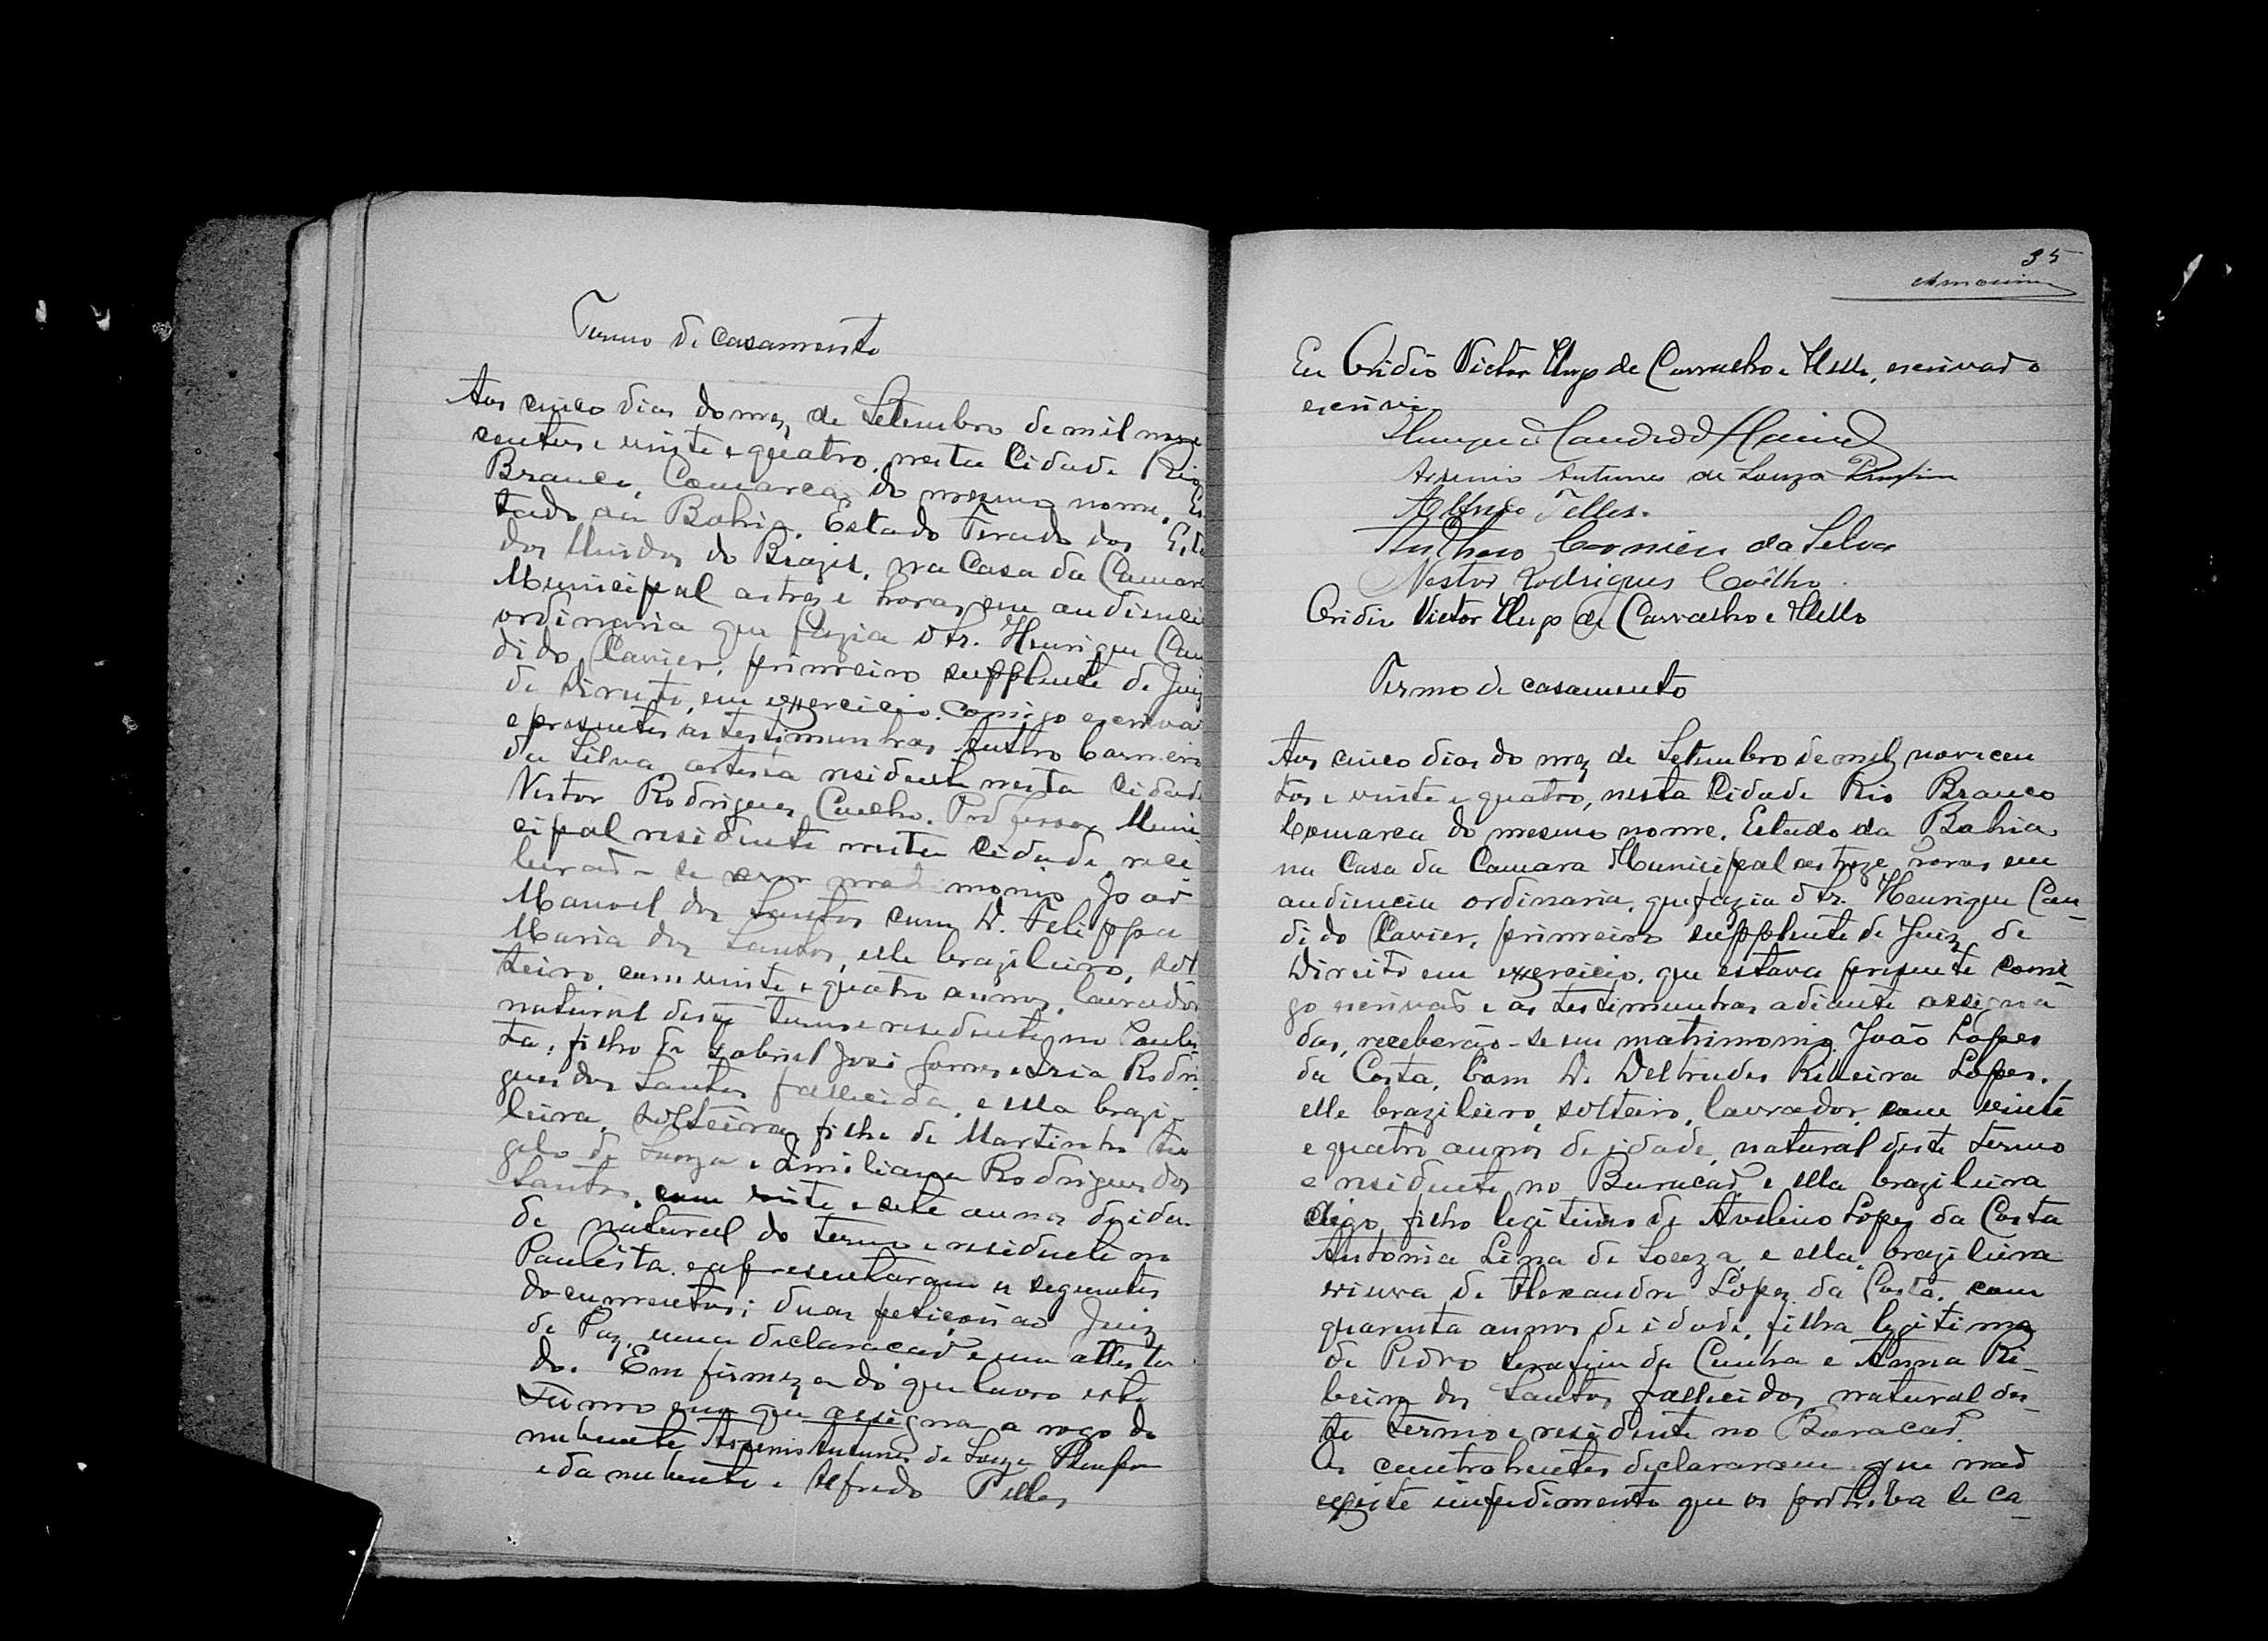 Termo de casamento
Aos cinco dias do mez de Setembro de mil nove
centos e vinte e quatro, nesta Cidade Rio
Branco, Comarca do mesmo nome, Es
tado da Bahia, Estado Ferado dos Esta
dos Unidos do Brazil, na Casa da Camara
Municipal as treze horas em audiencia
ordinaria que fazia o Sr. Henrique Can
dido Xavier, primeiro supplente de Juiz
de Direito, em exercicio. Comigo escrivão
e presentes as testimunhas Anthero Carneiro
da Silva artista residente nesta Cidade
Nestor Rodrigues Coelho, Professor Muni
cipal residente nesta Cidade, rece
berão-se em matrimonio João
Manoel dos Santos com D. Felippa
Maria dos Santos, elle brazileiro, sol
teiro, com vinte e quatro annos, lavrador
natural deste termo e residente no Paulis
ta, filho de Gabriel José Gomes e Rodri
gues dos Santos fallecida, e ella brazi
leira, solteira, filha de Martinho
de Souza e Emiliana Rodrigues dos
Santos, com vinte e sete annos de ida
de natural do termo e residente no
Paulista. e apresentaram os seguintes
documentos; duas petições ao Juiz
de Paz, uma declaração e um attesta
do. Em firmeza do que lavro este
termo em que assigna a rogo do
nubente Arsenio Antunes de Souza
e da nubente e Alfredo Telles
35
Amorim
Eu Ovidio Victor Hugo de Carvalho e Mello, escrivão o
escrivi.
Henrique Candido Xavier
Arsenio Antunes de Souza
Alfredo Telles.
Anthero Carneiro da Silva
Nestor Rodrigues Coêlho.
Ovidio Victor Hugo de Carvalho e Mello
Termo de casamento
Aos cinco dias do mez de Setembro de mil novecen
tos e vinte e quatro, nesta Cidade Rio Branco
Comarca do mesmo nome, Estado da Bahia
na Casa da Camara Municipal as treze horas em
audiencia ordinaria, que fazia o Sr. Henrique Can-
dido Xavier, primeiro supplente de Juiz de
Direito em exercicio, que estava presente comi-
go escrivão e as testimunhas adiante assigna-
das, receberão-se em matrimonio João Lopes
da Costa, com D. Deltrudes Ribeira Lopes.,
elle brazileiro, solteiro, lavrador, com vinte
e quatro annos de idade, natural deste termo
e residente no Buracão, e ella brazileira
digo, filho legitimo de Avelino Lopes da Costa
Antonia Lima de Souza, e ella, brazileira
viuva de Alexandre Lopes da Costa, com
quarenta annos de idade, filha legitima
de Pedro Serafim da Cunha e Anna Ri-
beira dos Santos fallecidos, natural des-
te termo e residente no Buracão.
Os contrahentes declararam que não
existe impedimento que os prohiba de ca-